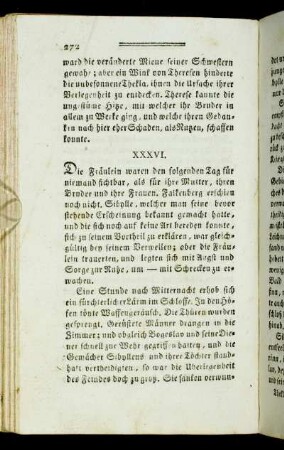 272
ward die veränderte Miene seiner Schwestern
gewahr; aber ein Wink von Theresen hinderte
die unbesonnene Thekla, ihnen die Ursache ihrer
Verlegenheit zu entdecken. Therese kannte die
ungestüme Hitze, mit welcher ihr Bruder in
allem zu Werke ging, und welche ihren Gedan-
ken nach hier eher Schaden, als Nutzen, schaffen
konnte.
XXXVI.
Die Fräulein waren den folgenden Tag für
niemand sichtbar, als für ihre Mutter, ihren
Bruder und ihre Frauen. Falkenberg erschien
noch nicht, Sibylle, welcher man seine bevor
stehende Erscheinung bekannt gemacht hatte,
und die sich noch auf keine Art bereden konnte,
sich zu seinem Vortheil zu erklären, war gleich-
gültig bey seinem Verweilen; aber die Fräu-
lein trauerten, und legten sich mit Angst und
Sorge zur Ruhe, um — mit Schrecken zu er-
wachen.
Eine Stunde nach Mitternacht erhob sich
ein fürchterlicher Lärm im Schlosse. In den Hö-
fen tönte Waffengeräusch. Die Thüren wurden
gesprengt, Gerüstete Männer drangen in die
Zimmer; und obgleich Bogislav und seine Die-
ner schnell zur Wehr gegriffen hatten, und die
Gemächer Sibyllens und ihrer Töchter stand-
haft vertheidigten, so war die Ueberlegenheit
des Feindes doch zu groß. Sie sanken verwun-